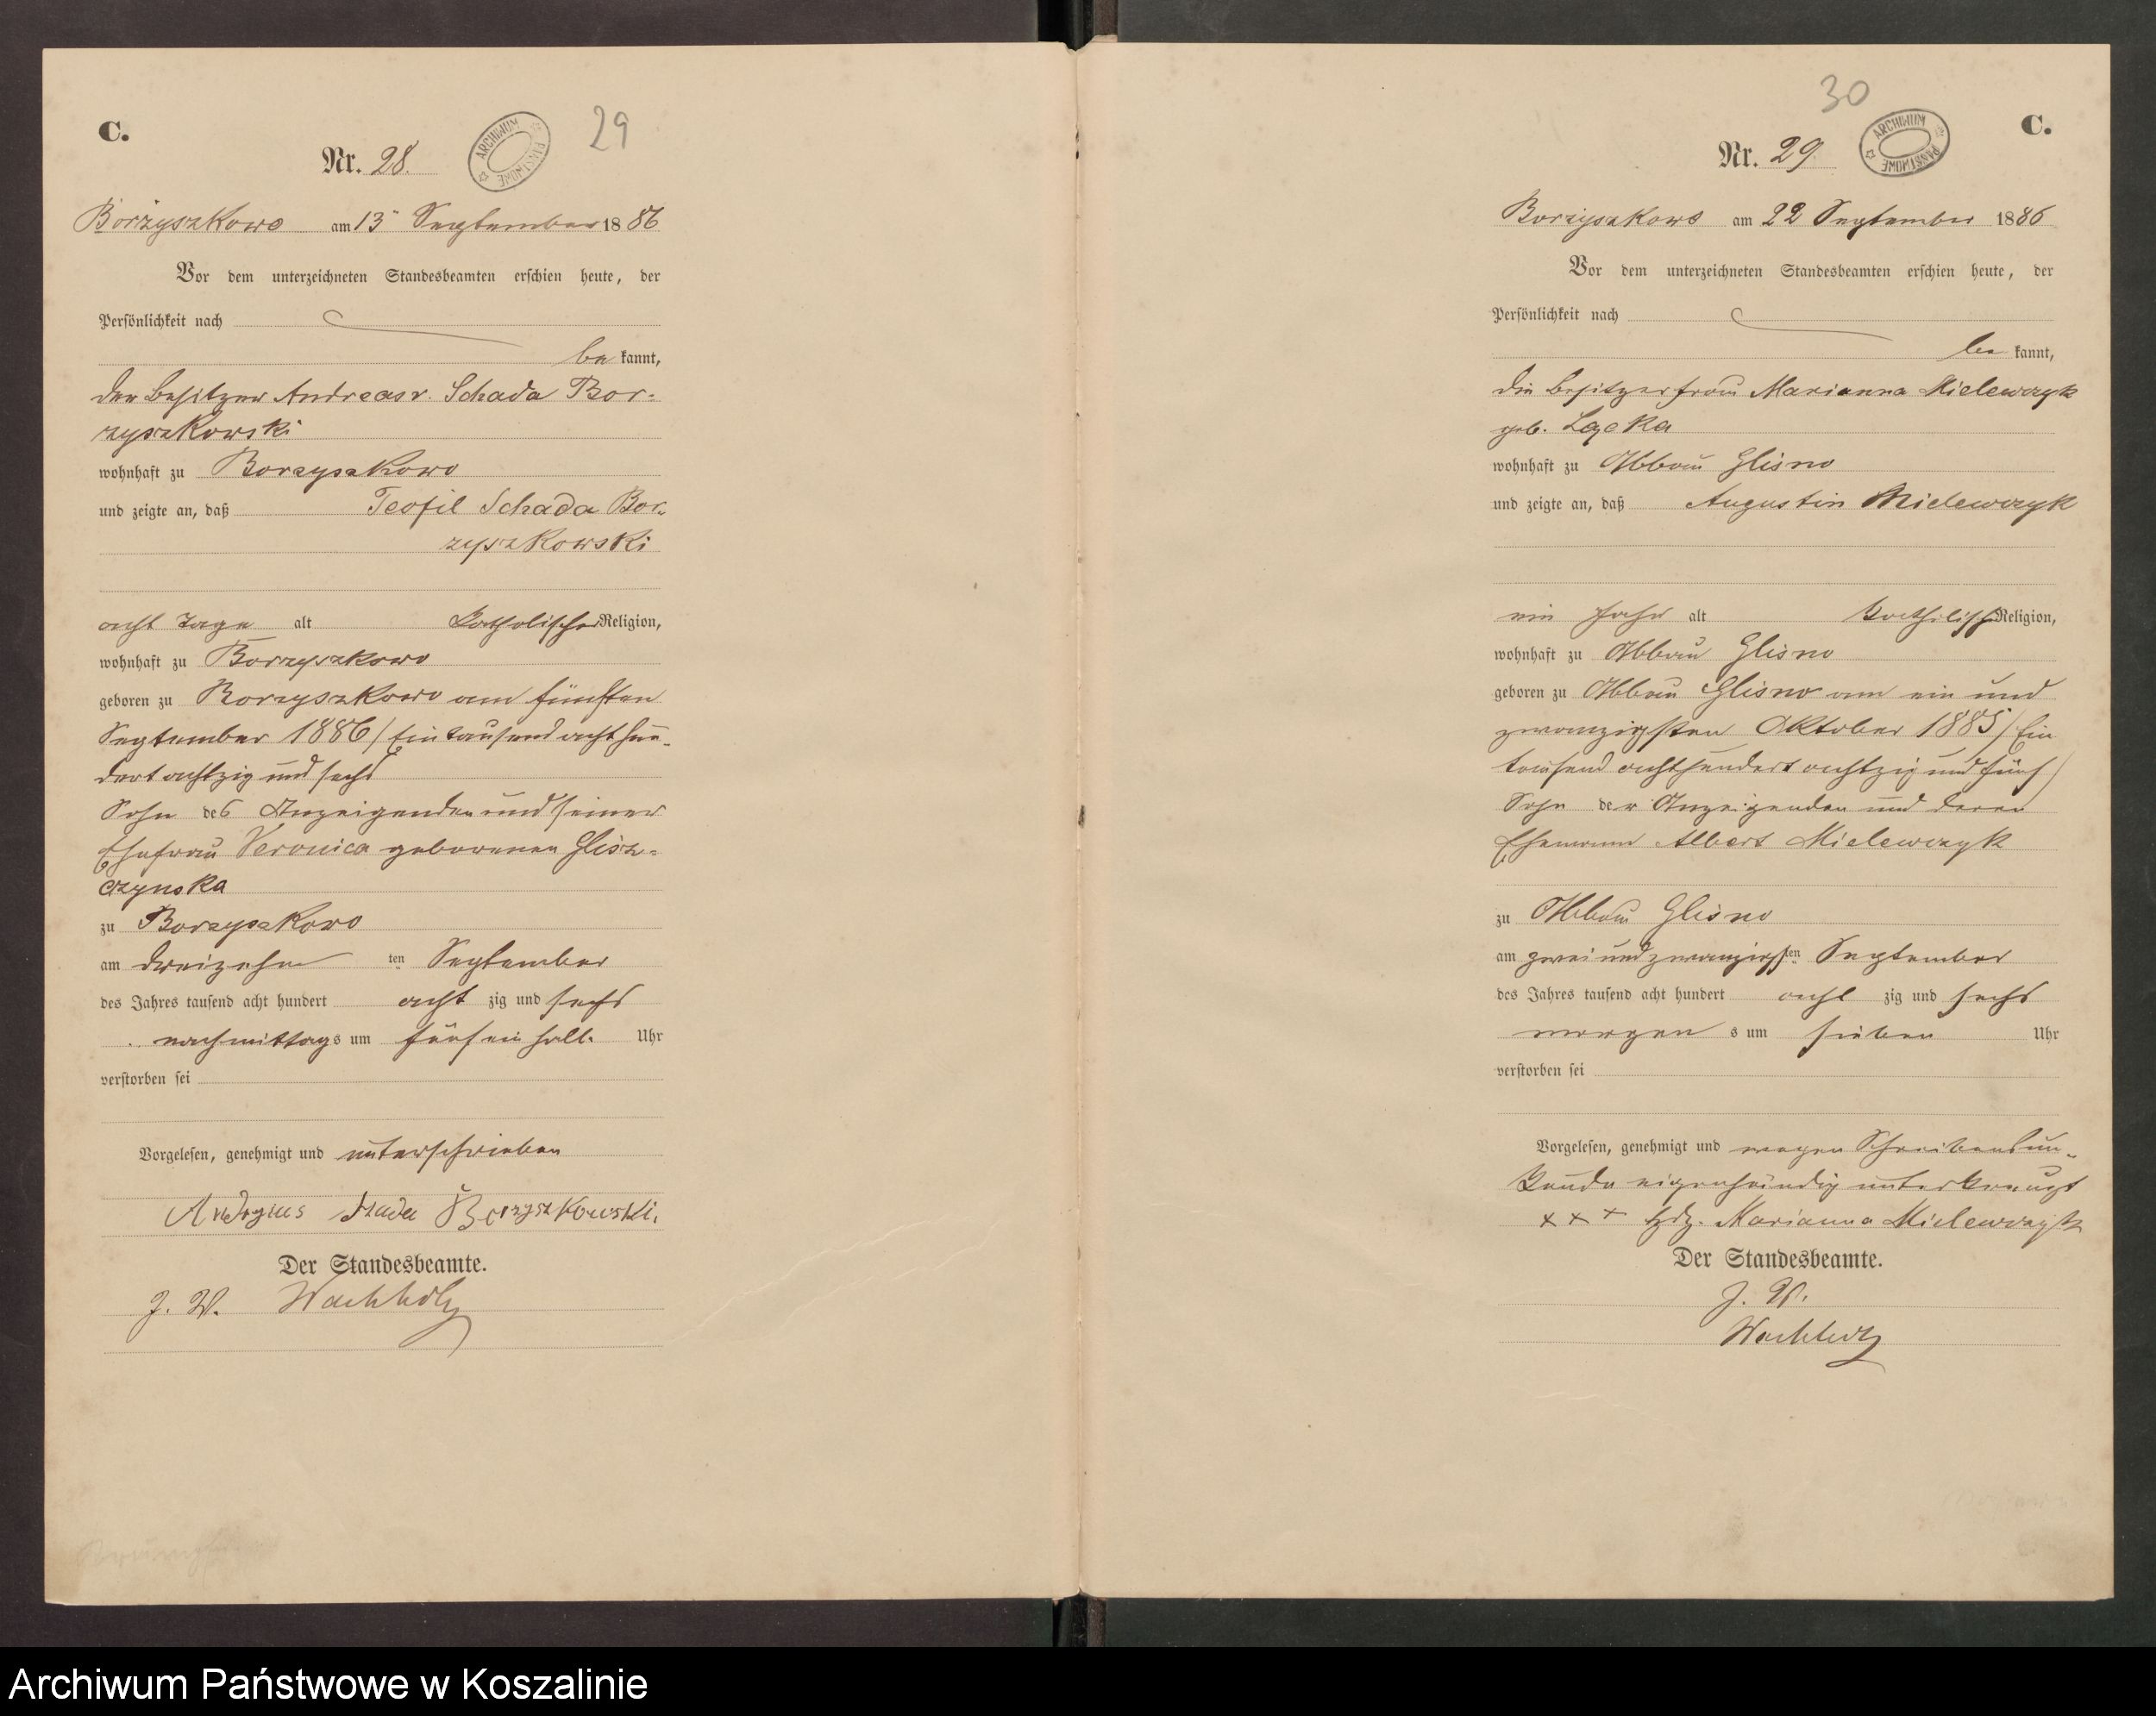 C.
Nr. 28.
ARCHIWUM PAŃSTWOWE
29
Borzyszkowo am 13 September 1886
Vor dem unterzeichneten Standesbeamten erschien heute, der
Persönlichkeit nach
be kannt,
der Besitzer Andreas v. Schada Bor-
zyszkowski
wohnhaft zu Borzyszkowo
und zeigte an, daß Teofil Schada Bor-
zyszkowski
acht Tage alt katholischer Religion,
wohnhaft zu Borzyszkowo
geboren zu Borzyszkowo am fünften
September 1886 / Eintausend achthun-
dert achtzig und sechs
Sohn des Anzeigenden und seiner
Ehefrau Veronica geborenen Glisz-
czynska
zu Borzyszkowo
am dreizehn ten September
des Jahres tausend acht hundert acht zig und sechs
nachmittags um fünfein halb Uhr
verstorben sei
Vorgelesen, genehmigt und unterschrieben
Borzyszkowski.
Der Standesbeamte.
J. V. Wachholz
30
C.
Nr. 29
ARCHIWUM PAŃSTWOWE
Borzyszkowo am 22 September 1886
Vor dem unterzeichneten Standesbeamten erschien heute, der
Persönlichkeit nach
be kannt,
die Besitzerfrau Marianna Mielewczyk
geb. Łącka
wohnhaft zu Abbau Glisno
und zeigte an, daß Augustin Mielewczyk
ein Jahr alt katholisch Religion,
wohnhaft zu Abbau Glisno
geboren zu Abbau Glisno am ein und
zwanzigsten Oktober 1885 / Ein
tausend achthundert achtzig und fünf /
Sohn der Anzeigenden und deren
Ehemann Albert Mielewczyk
zu Abbau Glisno
am zwei und zwanzigsten September
des Jahres tausend acht hundert acht zig und sechs
morgen s um sieben Uhr
verstorben sei
Vorgelesen, genehmigt und wegen Schreibensun-
kunde eigenhändig unterkreuzt
+++ hdz. Marianna Mielewczyk
Der Standesbeamte.
J. V.
Wachholz
Archiwum Państwowe w Koszalinie